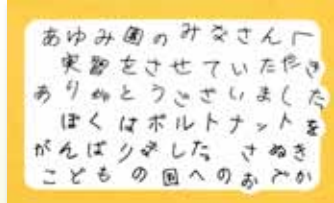 あゆみ園のみなさんへ
実習をさせていただき
ありがとうございました
ぼくはボルトナットを
がんばりました。さぬき
こどもの国へのおでか